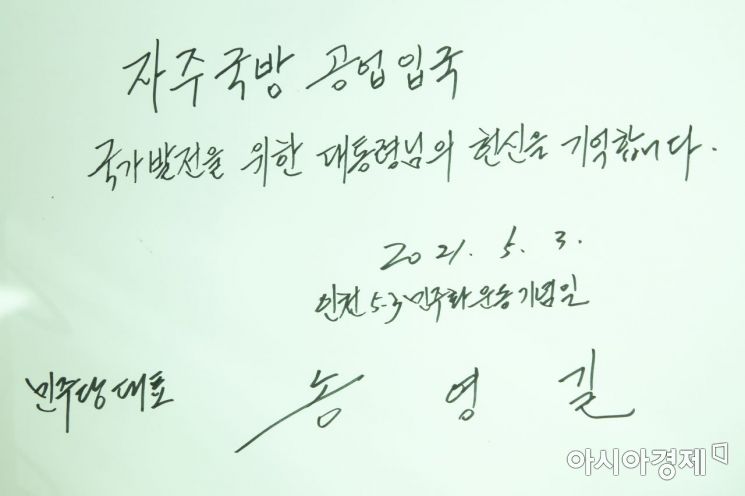 자주국방 공업입국
국가발전을 위한 대통령님의 헌신을 기억합니다.
2021. 5. 3.
인천 5.3 민주화운동기념일
민주당대표 송영길
아시아경제